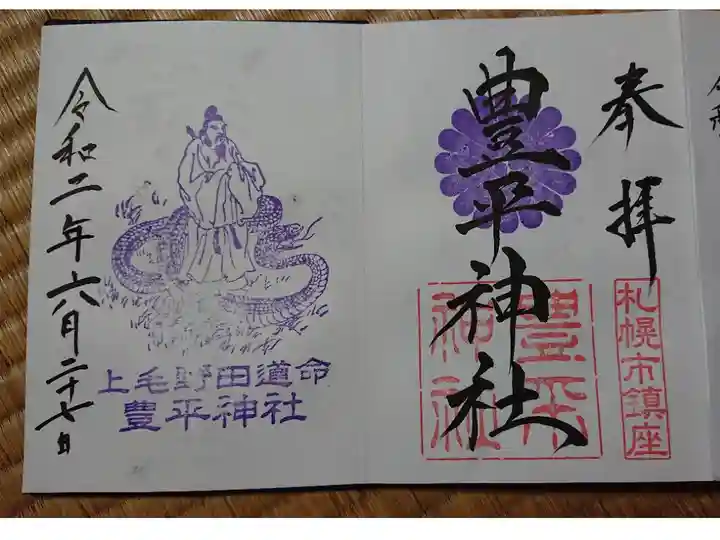 奉拝
札幌市鎮座
豊平神社
豊平神社
上毛野田道命
豊平神社
令和二年六月二十七日